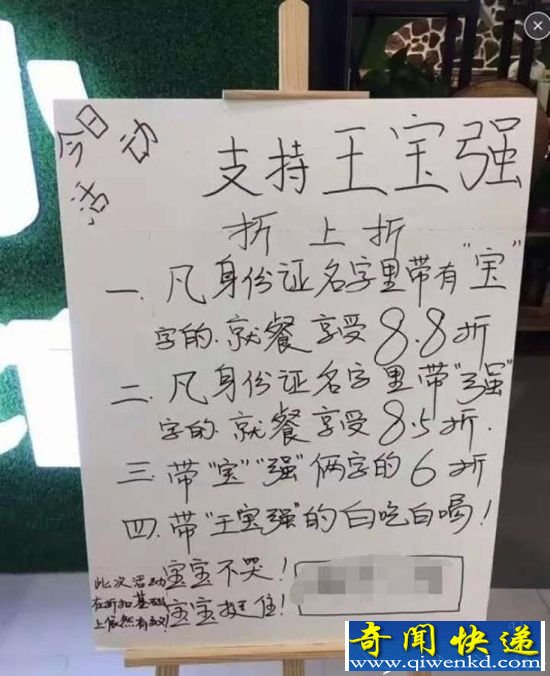 今日
活动
支持王宝强
折上折
一.凡身份证名字里带有"宝"
字的.就餐享受8.8折
二.凡身份证名字里带"强"
字的.就餐享受8.5折.
三.带"宝""强"俩字的6折
四.带"王宝强"的白吃白喝!
宝宝不哭!
宝宝挺住!
此次活动
在折扣基础
上依然有效!
奇闻快递
www.qiwenkd.com